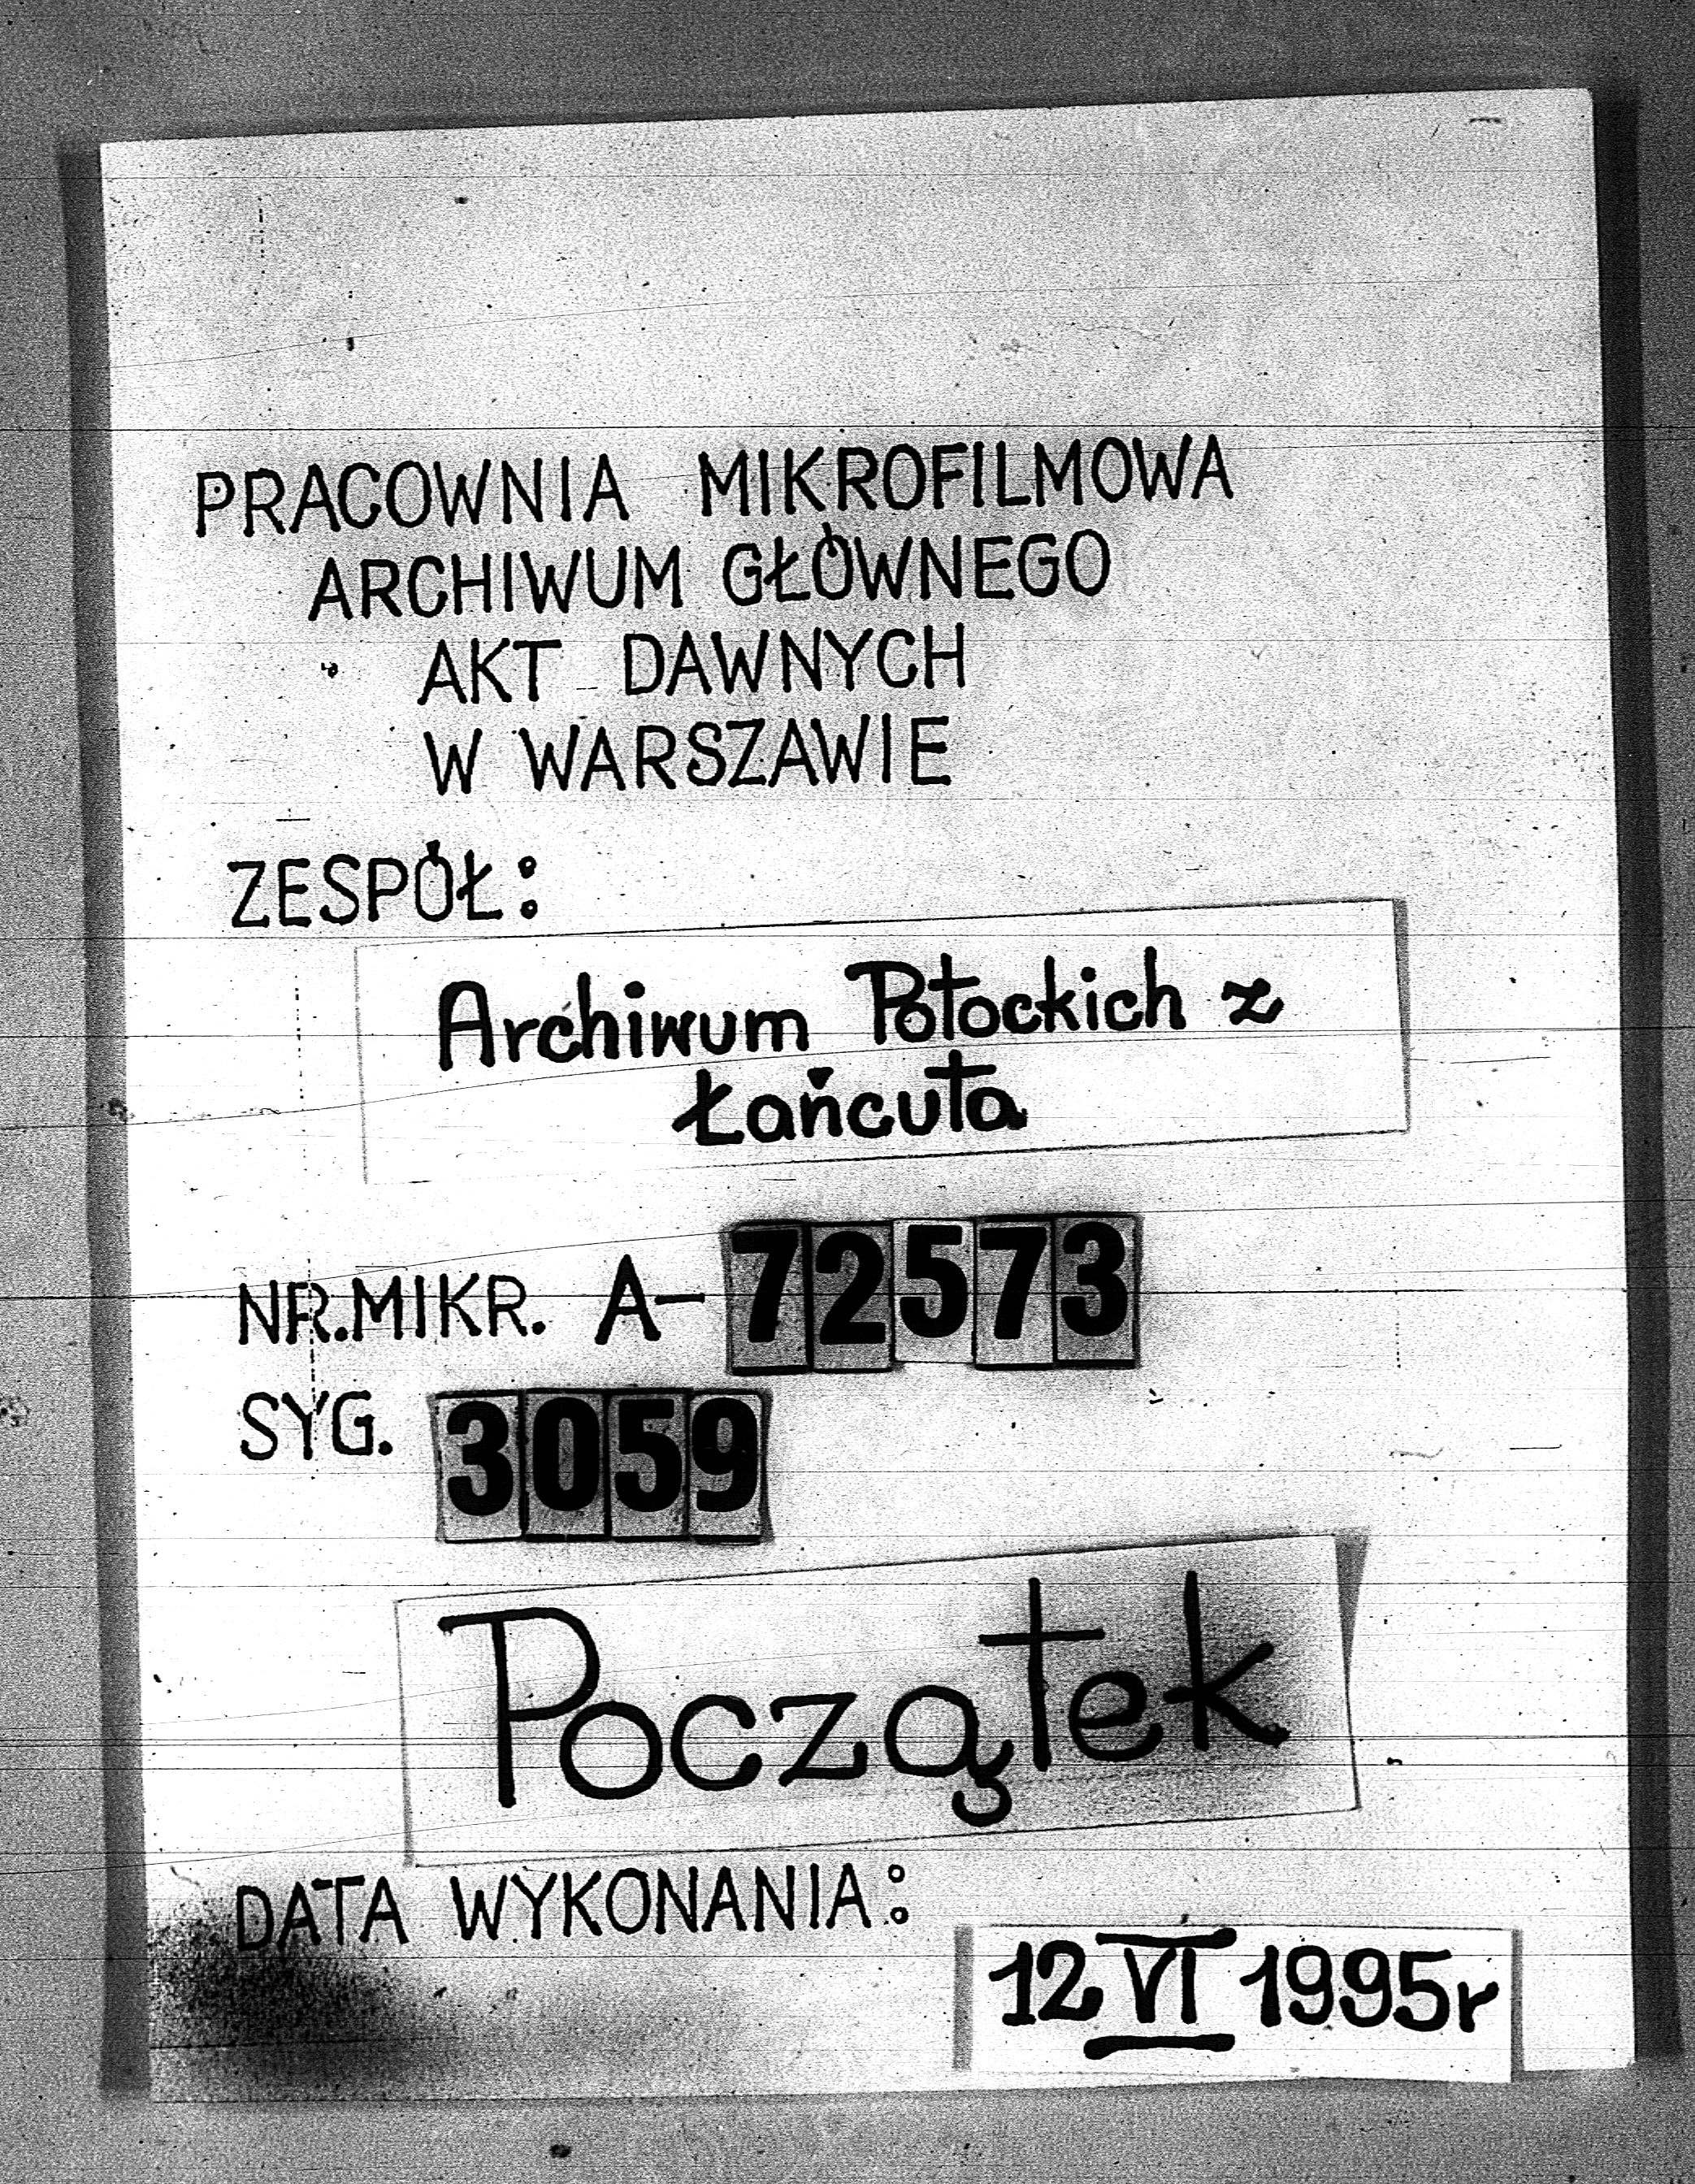 PRACOWNIA MIKROFILMOWA
ARCHIWUM GŁÓWNEGO
AKT DAWNYCH
W WARSZAWIE
ZESPÓŁ:
Archiwum Potockich z
Łańcuta
NR.MIKR. A-72573
SYG. 3059
Początek
DATA WYKONANIA:
12 VI 1995r